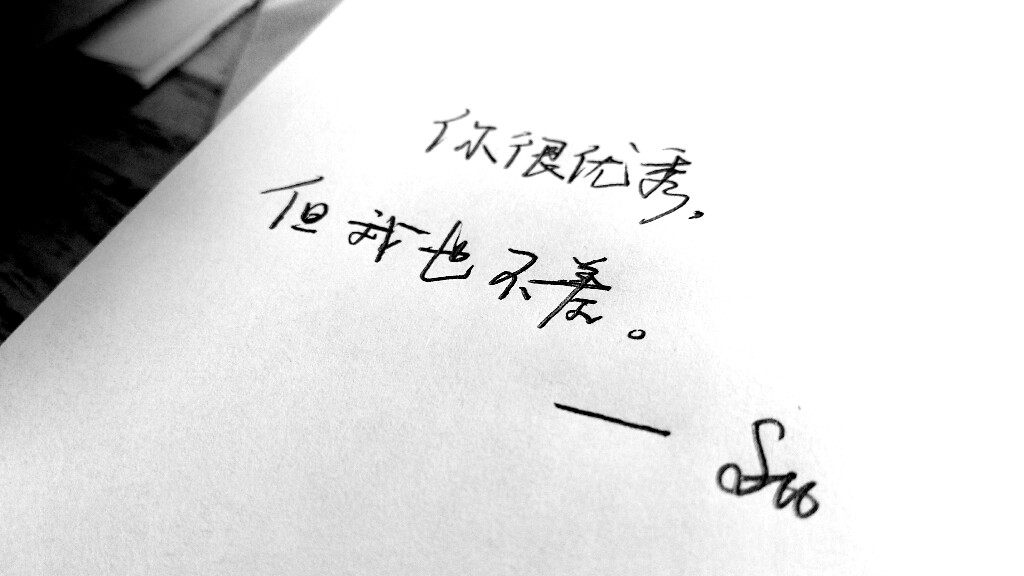 你很优秀,
但我也不差。